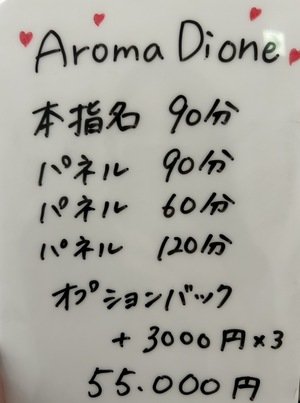 Aroma Dione
本指名 90分
パネル 90分
パネル 60分
パネル 120分
オプションバック
+ 3000円×3
55.000円